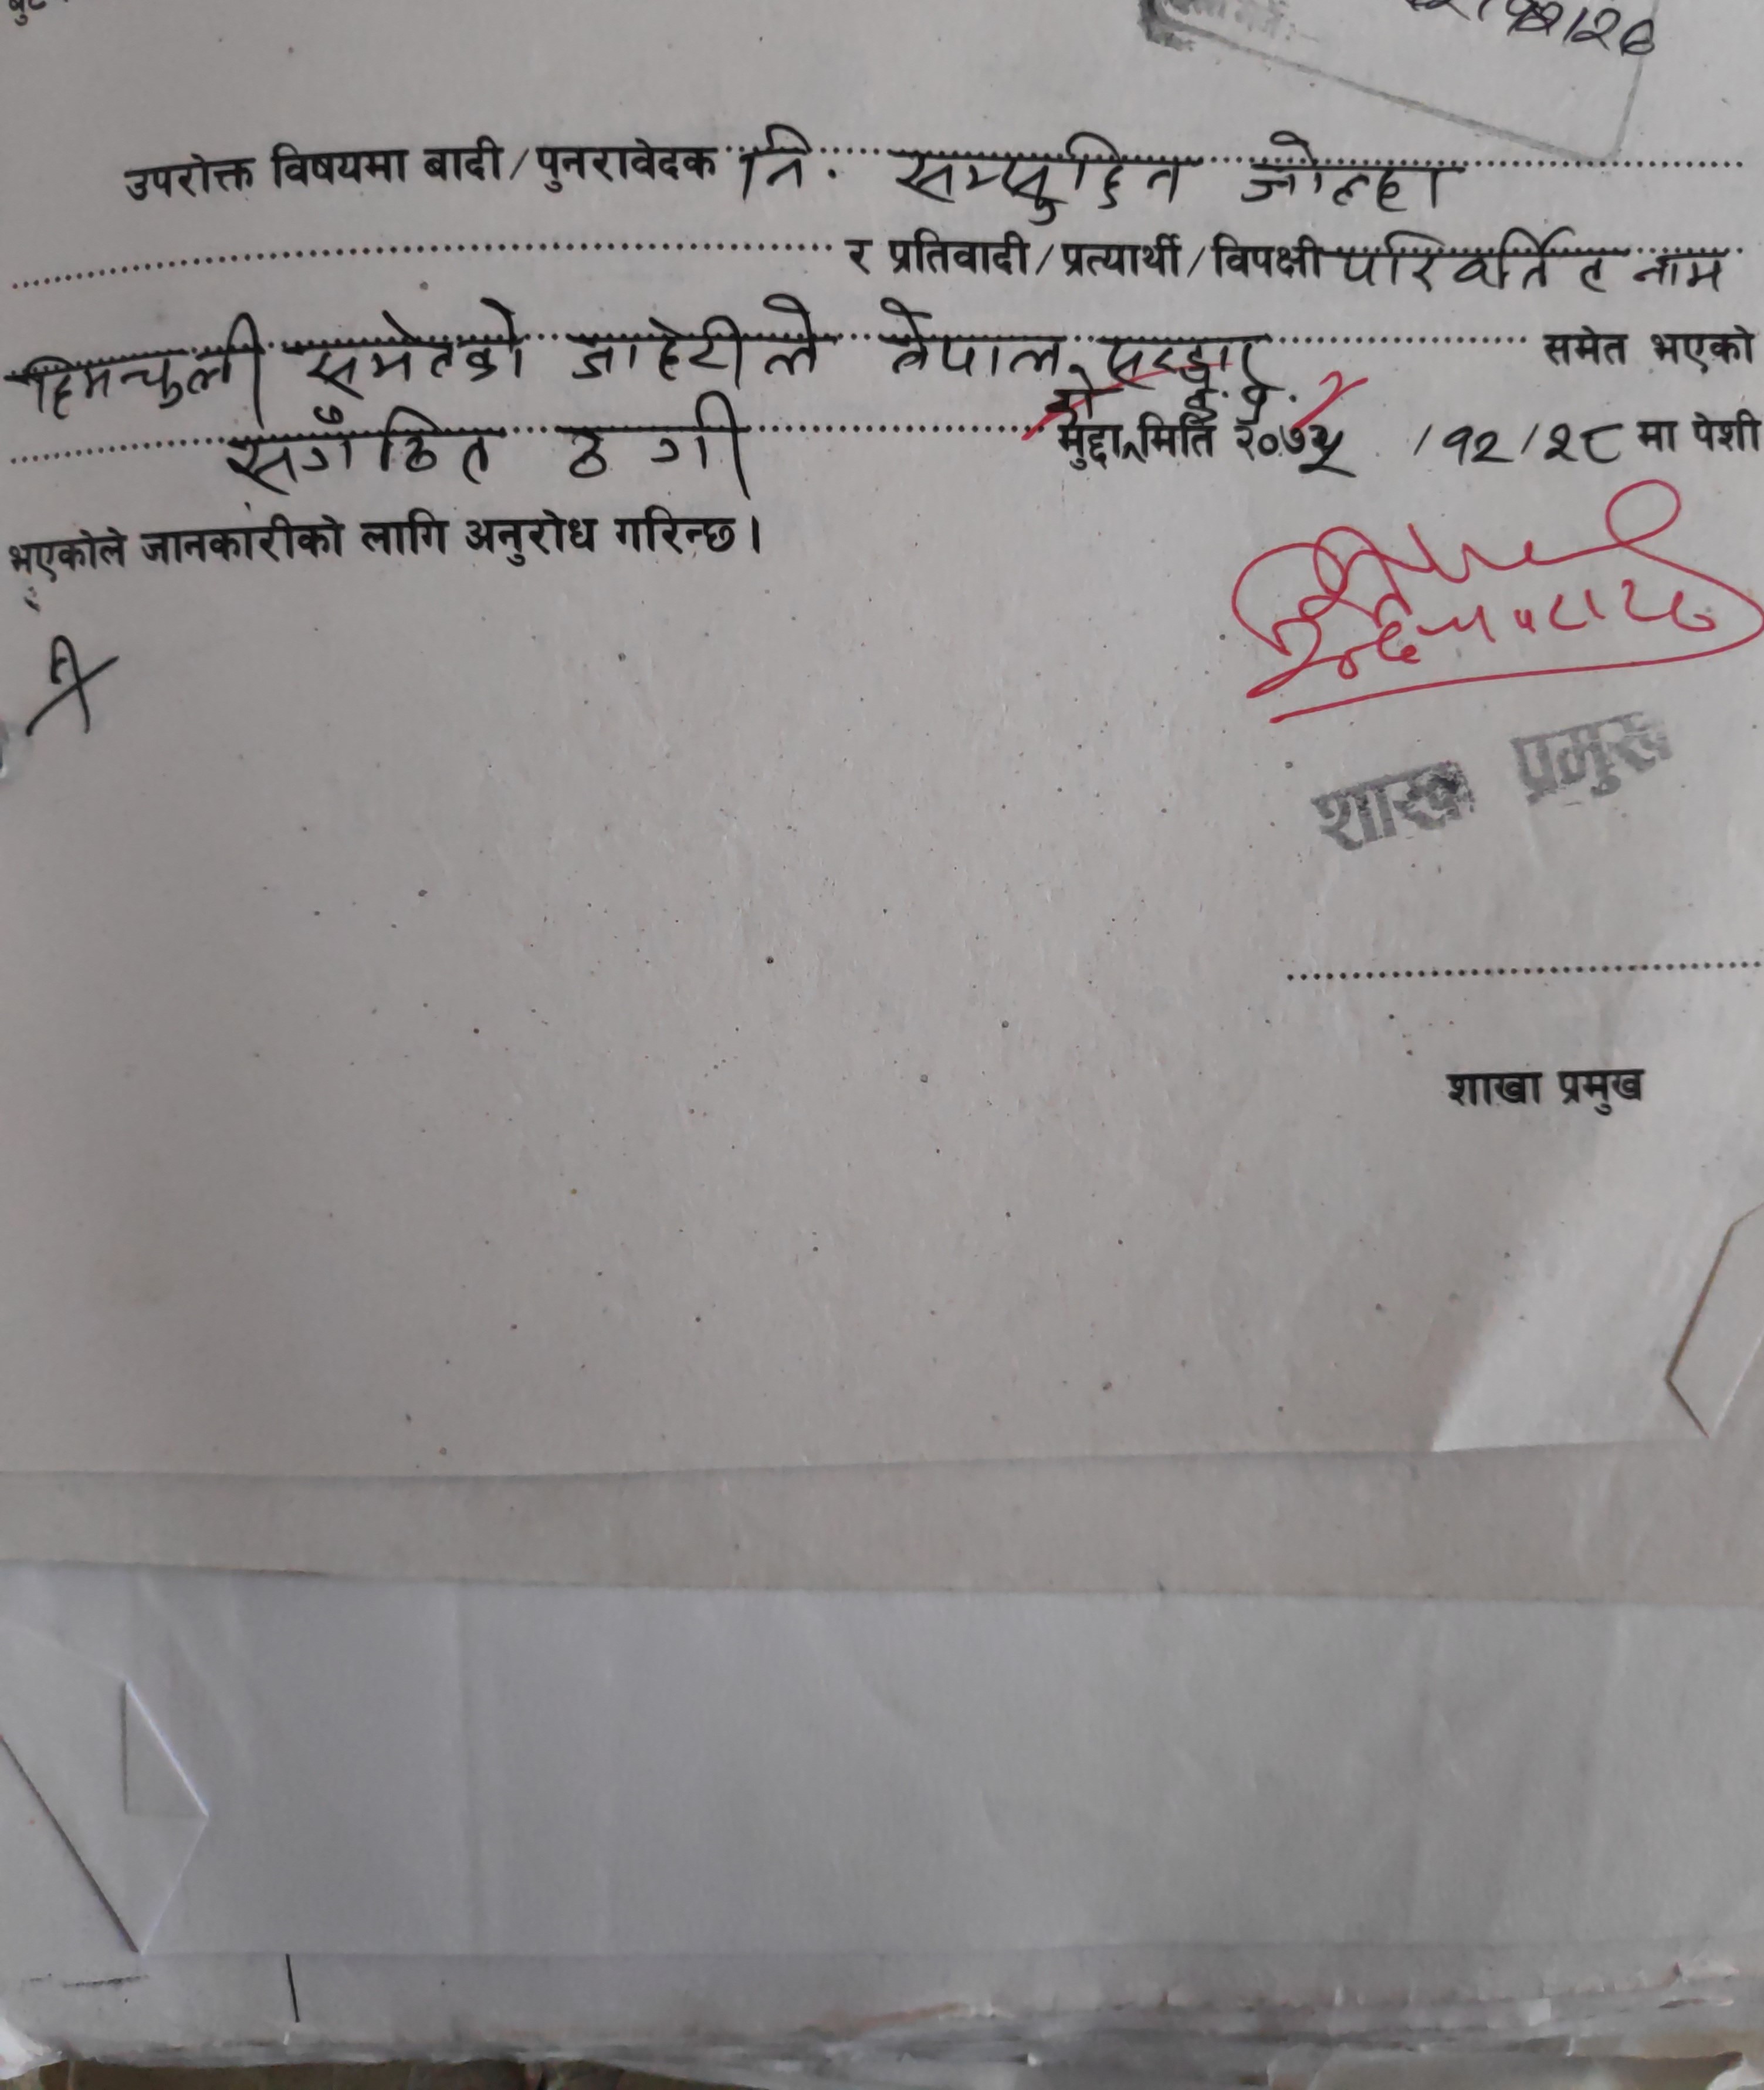 /१२/२८
उपरोक्त विषयमा बादी/पुनरावेदक नि. सम्सुद्दिन जोल्हा
र प्रतिवादी/प्रत्यार्थी/विपक्षी परिवर्तित नाम
हिमन्चुली समेतको जाहेरीले नेपाल सरकार समेत भएको
को
संगठित ठगी मुद्दा मिति २०७५ /१२/२८ मा पेशी
भएकोले जानकारीको लागि अनुरोध गरिन्छ।
शाखा प्रमुख
शाखा प्रमुख